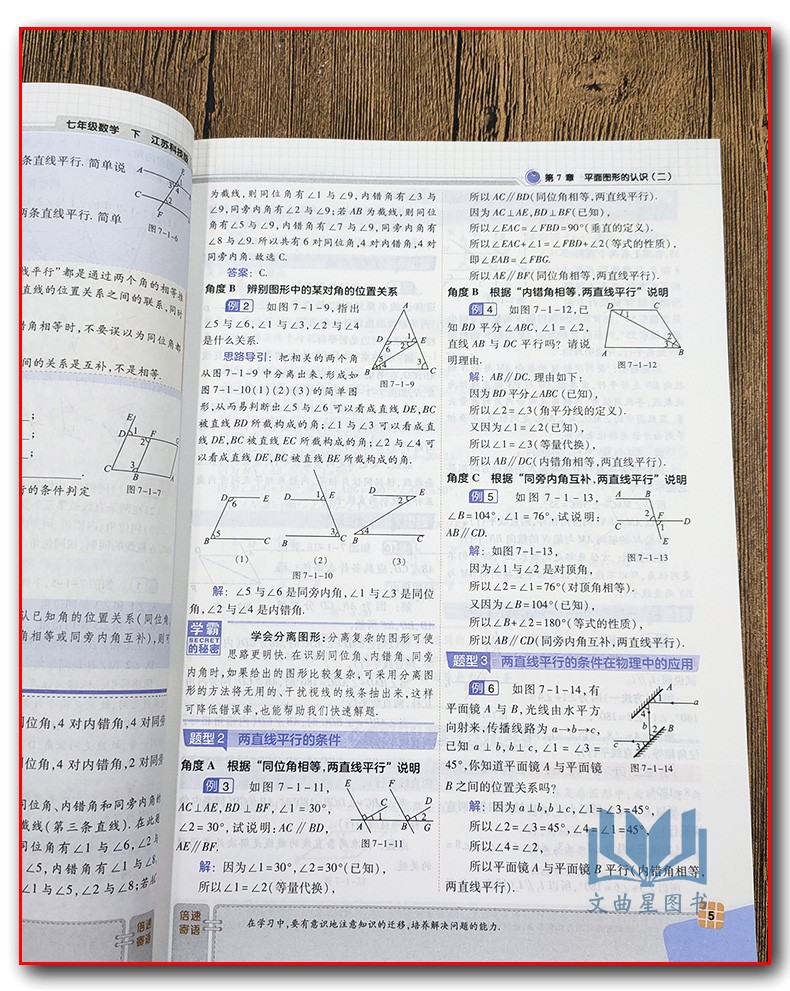 七年级数学 下 江苏科技版
条直线平行. 简单说
两条直线平行. 简单
图 7-1-6
线平行”都是通过两个角的相等推
直线的位置关系之间的联系, 同时
错角相等时, 不要误以为同位角都
间的关系是互补, 不是相等.
图 7-1-7
行的条件判定
认已知角的位置关系(同位角
角相等或同旁内角互补), 则可
同位角, 4 对内错角, 4 对同旁
角, 4 对内错角, 2 对同旁
同位角、内错角和同旁内角的
截线(第三条直线). 在此题
同位角有∠1 与∠6, ∠2 与
∠5, 内错角有∠1 与∠8,
∠1 与∠5, ∠2 与∠8; 若
第 7 章 平面图形的认识(二)
为截线, 则同位角有∠1 与∠9, 内错角有∠3 与
∠9, 同旁内角有∠2 与∠9; 若 AB 为截线, 则同位
角有∠5 与∠9, 内错角有∠7 与∠9, 同旁内角有
∠8 与∠9. 所以共有 6 对同位角, 4 对内错角, 4 对
同旁内角. 故选 C.
答案: C.
角度 B 辨别图形中的某对角的位置关系
例 2 如图 7-1-9, 指出
∠5 与∠6, ∠1 与∠3, ∠2 与∠4
是什么关系.
思路导引: 把相关的两个角
从图 7-1-9 中分离出来, 形成如
图 7-1-10(1)(2)(3)的简单图
图 7-1-9
形, 从而易判断出∠5 与∠6 可以看成直线 DE, BC
被直线 BD 所截构成的角; ∠1 与∠3 可以看成直
线 DE, BC 被直线 EC 所截构成的角; ∠2 与∠4 可
以看成直线 DE, BC 被直线 BE 所截构成的角.
(1) (2) (3)
图 7-1-10
解: ∠5 与∠6 是同旁内角, ∠1 与∠3 是同位
角, ∠2 与∠4 是内错角.
学霸
SECRET
的秘密
学会分离图形: 分离复杂的图形可使
思路更明快. 在识别同位角、内错角、同旁
内角时, 如果给出的图形比较复杂, 可采用分离图
形的方法将无用的、干扰视线的线条抽出来, 这样
可降低错误率, 也能帮助我们快速解题.
题型 2 两直线平行的条件
角度 A 根据“同位角相等, 两直线平行”说明
例 3 如图 7-1-11,
AC⊥AE, BD⊥BF, ∠1=30°,
∠2=30°, 试说明: AC∥BD,
AE∥BF.
图 7-1-11
解: 因为∠1=30°, ∠2=30°(已知),
所以∠1=∠2(等量代换),
所以 AC∥BD(同位角相等, 两直线平行).
因为 AC⊥AE, BD⊥BF(已知),
所以∠EAC=∠FBD=90°(垂直的定义).
所以∠EAC+∠1=∠FBD+∠2(等式的性质),
即∠EAB=∠FBG.
所以 AE∥BF(同位角相等, 两直线平行).
角度 B 根据“内错角相等, 两直线平行”说明
例 4 如图 7-1-12, 已
知 BD 平分∠ABC, ∠1=∠2,
直线 AB 与 DC 平行吗? 请说
明理由.
图 7-1-12
解: AB∥DC. 理由如下:
因为 BD 平分∠ABC(已知),
所以∠2=∠3(角平分线的定义).
又因为∠1=∠2(已知),
所以∠1=∠3(等量代换),
所以 AB∥DC(内错角相等, 两直线平行).
角度 C 根据“同旁内角互补, 两直线平行”说明
例 5 如图 7-1-13,
∠B=104°, ∠1=76°, 试说明:
AB∥CD.
图 7-1-13
解: 如图 7-1-13,
因为∠1 与∠2 是对顶角,
所以∠2=∠1=76°(对顶角相等).
又因为∠B=104°(已知),
所以∠B+∠2=180°(等式的性质),
所以 AB∥CD(同旁内角互补, 两直线平行).
题型 3 两直线平行的条件在物理中的应用
例 6 如图 7-1-14, 有
平面镜 A 与 B, 光线由水平方
向射来, 传播线路为 a→b→c,
已知 a⊥b, b⊥c, ∠1=∠3=
45°, 你知道平面镜 A 与平面镜
B 之间的位置关系吗?
图 7-1-14
解: 因为 a⊥b, b⊥c, ∠1=∠3=45°,
所以∠2=∠3=45°, ∠4=∠1=45°,
所以∠4=∠2,
所以平面镜 A 与平面镜 B 平行(内错角相等,
两直线平行).
倍速
寄语
在学习中, 要有意识地注意知识的迁移, 培养解决问题的能力.
5
文曲星图书